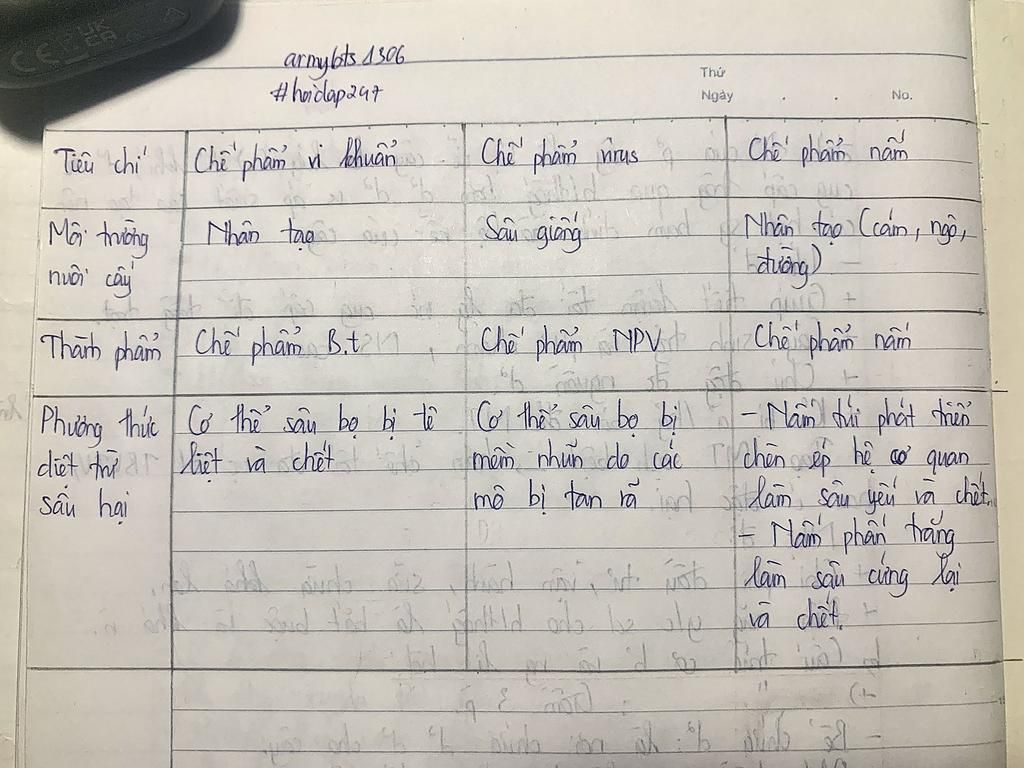 CE UK CA
armybts1306
#hoidap247
Thứ
Ngày . . No.
Tiêu chí
Chế phẩm vi khuẩn
Chế phẩm virus
Chế phẩm nấm
Môi trường
nuôi cấy
Nhân tạo
Sâu giống
Nhân tạo (cám, ngô,
đường)
Thành phẩm
Chế phẩm B.t
Chế phẩm NPV
Chế phẩm nấm
Phương thức
diệt trừ
sâu hại
Cơ thể sâu bọ bị tê
liệt và chết
Cơ thể sâu bọ bị
mềm nhũn do các
mô bị tan rã
- Nấm túi phát triển
chèn ép hệ cơ quan
làm sâu yếu và chết.
- Nấm phấn trắng
làm sâu cứng lại
và chết.